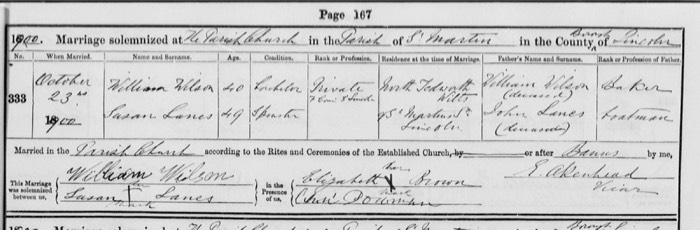 Page 167
1900. Marriage solemnized at The Parish Church in the Parish of St. Martin in the County Boro of Lincoln
No. When Married. Name and Surname. Age. Condition. Rank or Profession. Residence at the time of Marriage. Father's Name and Surname. Rank or Profession of Father.
333 October 23rd 1900
William Wilson 40 Bachelor Private North Tedworth Wilts William Wilson (deceased) Baker
Susan Lanes 49 Spinster 9 St Martins Lincoln John Lanes (deceased) Boatman
Married in the Parish Church according to the Rites and Ceremonies of the Established Church, by or after Banns by me,
This Marriage was solemnized between us, William Wilson
Susan her X mark Lanes
in the Presence of us, Elizabeth her X mark Brown
E. Akenhead
Vicar